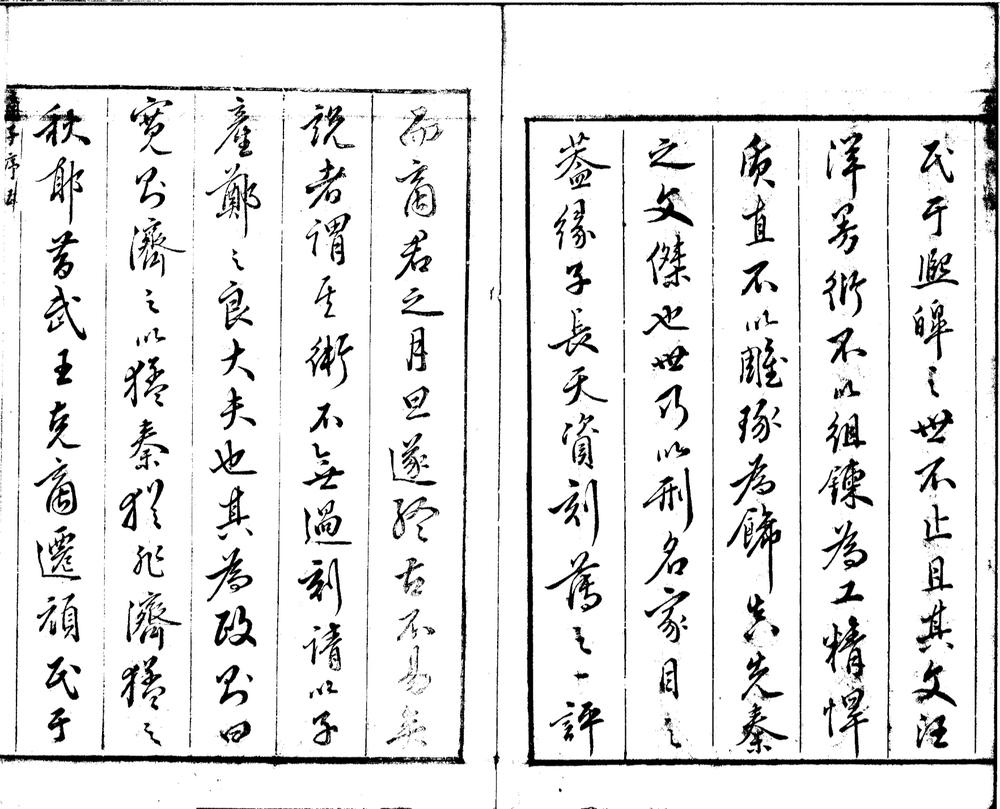 民于熙皥之世不止且其文汪
洋另術不以組鍊為工精悍
質直不以雕琢為飾真先秦
之文傑也世乃以刑名家目之
蓋緣子長天資刻薄之一評
而商君之月旦遂終古不易矣
說者謂其術不無過刻請以子
產鄭之良大夫也其為政則曰
寬則濟之以猛秦猶非濟猛之
秋耶昔武王克商遷頑民于
子序